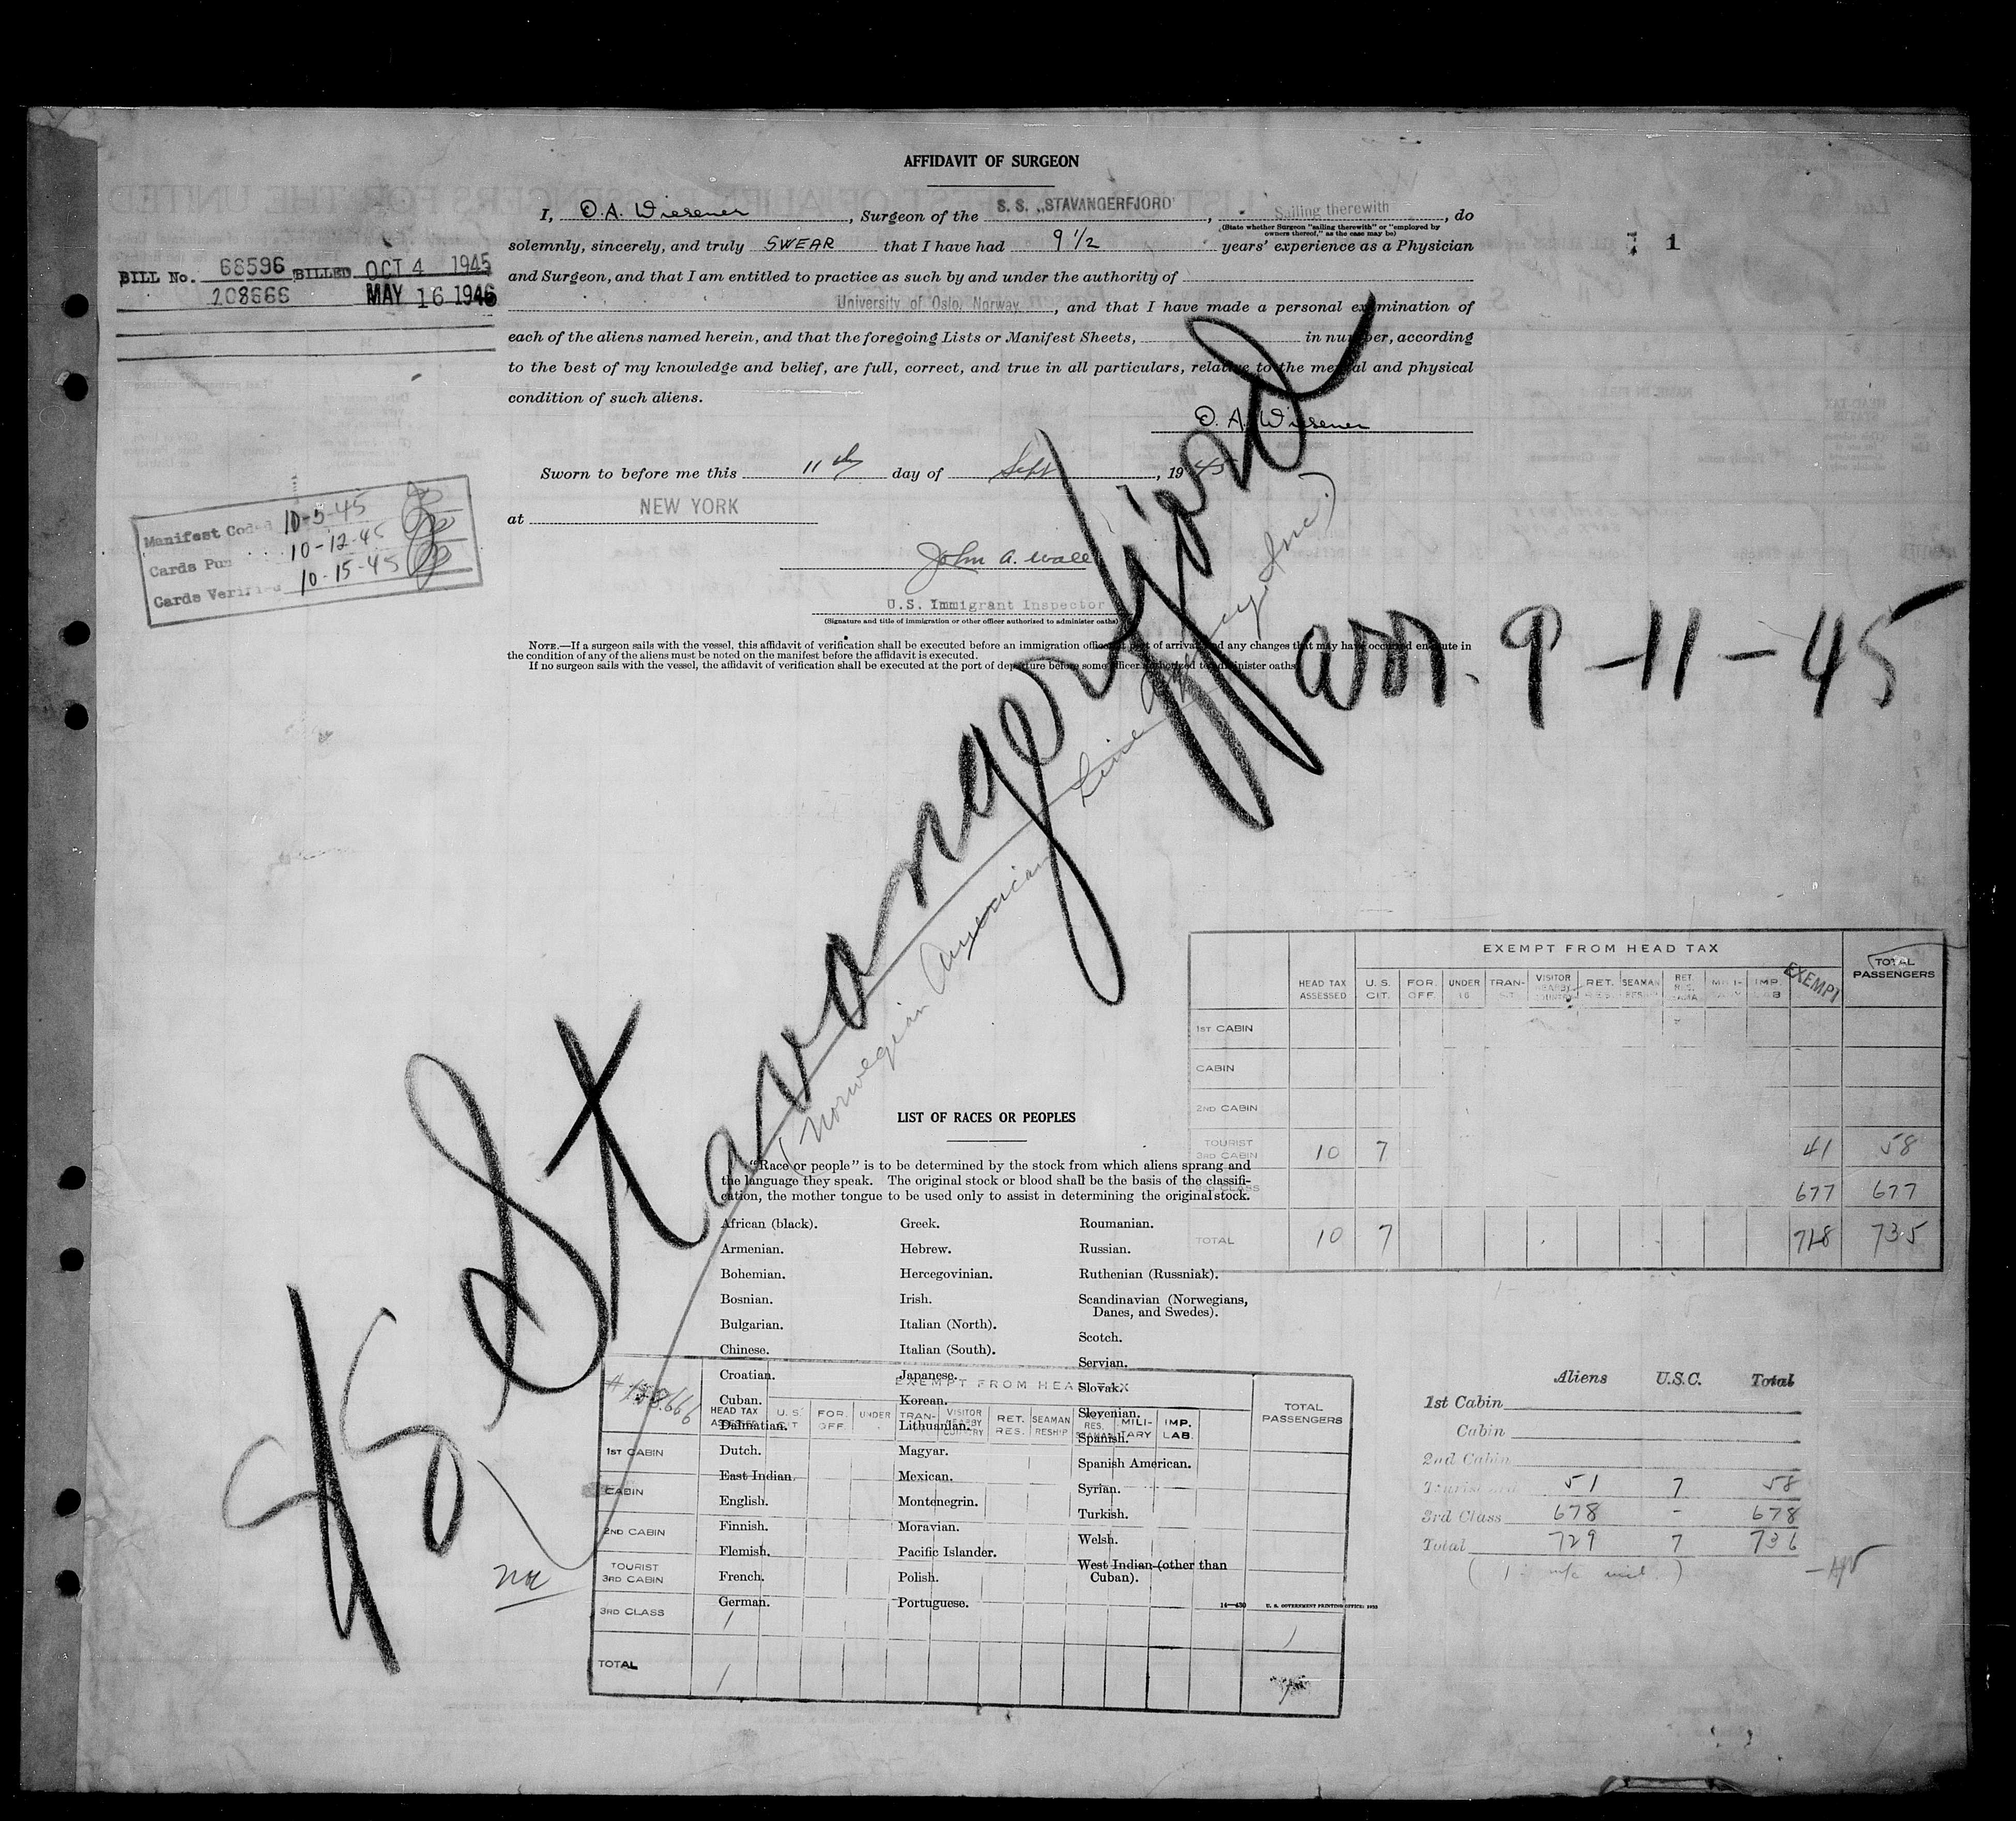 AFFIDAVIT OF SURGEON
I, O.A. Wiesener, Surgeon of the S. S. „STAVANGERFJORD", Sailing therewith, do
(State whether Surgeon "sailing therewith" or "employed by
owners thereof," as the case may be)
solemnly, sincerely, and truly SWEAR that I have had 9 1/2 years' experience as a Physician
and Surgeon, and that I am entitled to practice as such by and under the authority of
University of Oslo, Norway, and that I have made a personal examination of
each of the aliens named herein, and that the foregoing Lists or Manifest Sheets, in number, according
to the best of my knowledge and belief, are full, correct, and true in all particulars, relative to the mental and physical
condition of such aliens.
O. A. Wiesener
Sworn to before me this 11th day of Sept, 1945
at NEW YORK
John A. Wall
U.S. Immigrant Inspector
(Signature and title of immigration or other officer authorized to administer oaths)
NOTE.—If a surgeon sails with the vessel, this affidavit of verification shall be executed before an immigration officer at port of arrival and any changes that may have occurred en route in
the condition of any of the aliens must be noted on the manifest before the affidavit is executed.
If no surgeon sails with the vessel, the affidavit of verification shall be executed at the port of departure before some officer authorized to administer oaths.
1
BILL No. 66596 BILLED OCT 4 1945
208666 MAY 16 1946
Manifest Coded 10-5-45
Cards Pun 10-12-45
Cards Verified 10-15-45
SS. Stavangerfjord
(Norwegian American Line Agency, Inc.)
arr. 9-11-45
EXEMPT FROM HEAD TAX
HEAD TAX ASSESSED U.S. CIT. FOR. OFF. UNDER 16 TRAN- SIT VISITOR NEARBY COUNTRY RET. RES. SEAMAN RESHIP RET. RES. SEAMAN MILI- TARY IMP. LAB EXEMPT TOTAL PASSENGERS
1ST CABIN
CABIN
2ND CABIN
TOURIST 3RD CABIN 10 7 41 58
3RD CLASS 677 677
TOTAL 10 7 718 735
LIST OF RACES OR PEOPLES
"Race or people" is to be determined by the stock from which aliens sprang and
the language they speak. The original stock or blood shall be the basis of the classifi-
cation, the mother tongue to be used only to assist in determining the original stock.
African (black).
Armenian.
Bohemian.
Bosnian.
Bulgarian.
Chinese.
Croatian.
Cuban.
Dalmatian.
Dutch.
East Indian.
English.
Finnish.
Flemish.
French.
German.
Greek.
Hebrew.
Hercegovinian.
Irish.
Italian (North).
Italian (South).
Japanese.
Korean.
Lithuanian.
Magyar.
Mexican.
Montenegrin.
Moravian.
Pacific Islander.
Polish.
Portuguese.
Roumanian.
Russian.
Ruthenian (Russniak).
Scandinavian (Norwegians,
Danes, and Swedes).
Scotch.
Servian.
Slovak.
Slovenian.
Spanish.
Spanish American.
Syrian.
Turkish.
Welsh.
West Indian (other than
Cuban).
14—430 U. S. GOVERNMENT PRINTING OFFICE
EXEMPT FROM HEAD TAX
HEAD TAX ASSESSED U.S. CIT FOR. OFF. UNDER TRAN- VISITOR NEARBY COUNTRY RET. RES. SEAMAN RESHIP RES. MILI- TARY IMP. LAB. TOTAL PASSENGERS
1ST CABIN
CABIN
2ND CABIN
TOURIST 3RD CABIN
3RD CLASS 1 1
TOTAL 1
Aliens U.S.C. Total
1st Cabin
Cabin
2nd Cabin
Tourist 51 7 58
3rd Class 678 - 678
Total 729 7 736